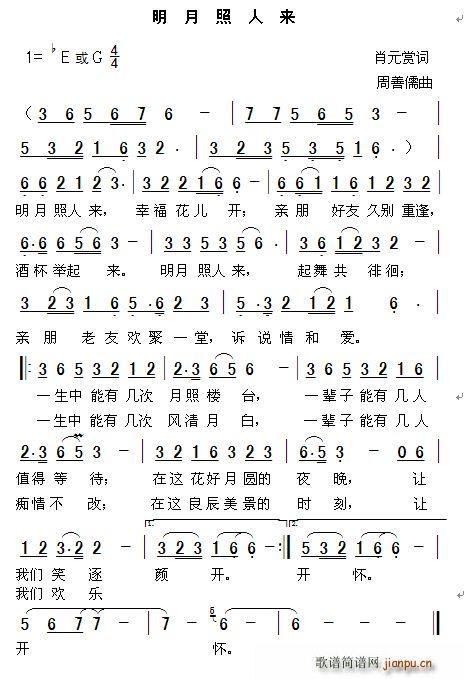 明 月 照 人 来
1= ♭E 或 G 4/4
肖元赏词
周善儒曲
（ 3 6 | 5 6 7 6 － | 7 7 5 6 5 3 － |
5 3 2 1 6 3 2 · | 5 3 2 3 5 1 6 · ） |
6 6 2 1 2 3 · | 3 2 2 1 6 6 － | 6 6 1 5 3 2 1 6 |
明 月 照 人 来， 幸 福 花 儿 开； 亲 朋 好友 久别 重逢，
6 · 6 6 5 6 3 · | 3 5 3 2 3 － | 3 6 1 2 3 2 · |
酒 杯 举起 来。 明月 照人 来， 起 舞 共 徘徊；
3 2 3 1 6 5 · 6 5 6 | 2 · 3 5 3 2 1 2 1 6 · |
亲 朋 老 友 欢 聚 一 堂， 诉 说 情 和 爱。
3 6 5 3 2 1 2 | 2 · 3 6 5 3 － | 3 6 5 3 2 1 2 |
一 生中 能有 几次 月照 楼 台， 一 辈子 能有 几人
一 生中 能有 几次 风清 月 白， 一 辈子 能有 几人
2 · 3 6 5 3 － | 3 2 1 6 3 2 3 | 6 · 5 3 － 0 6 |
值得 等 待； 在 这 花好 月 圆的 夜 晚， 让
痴情 不 改； 在 这 良辰 美 景的 时 刻， 让
1 2 3 · 2 2 － | 3 2 3 1 6 6 － | 5 3 2 1 6 6 － |
1.
2.
我们 笑 逐 颜 开。 开 怀。
我们 欢 乐
5 6 7 7 － | 7 － － － | 6 － － － | 6 － － |
开 怀。
歌谱简谱网
jianpu.cn